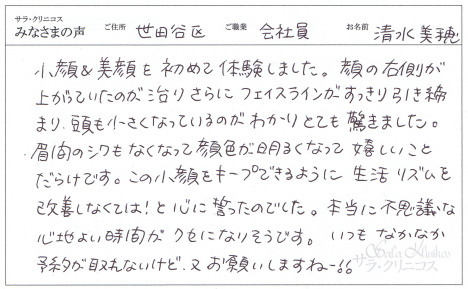 サラ・クリニコス
みなさまの声 ご住所 世田谷区 ご職業 会社員 お名前 清水美穂
小顔&美顔を初めて体験しました。顔の右側が
上がっていたのが治りさらにフェイスラインがすっきり引き締
まり、頭も小さくなっているのがわかりとても驚きました。
眉間のシワもなくなって顔色が明るくなって嬉しいこと
だらけです。この小顔をキープできるように生活リズムを
改善しなくては!と心に誓ったのでした。本当に不思議な
心地よい時間がクセになりそうです。いつもなかなか
予約が取れないけど、又お願いしますねー!!
Sala Klinikos
サラ・クリニコス